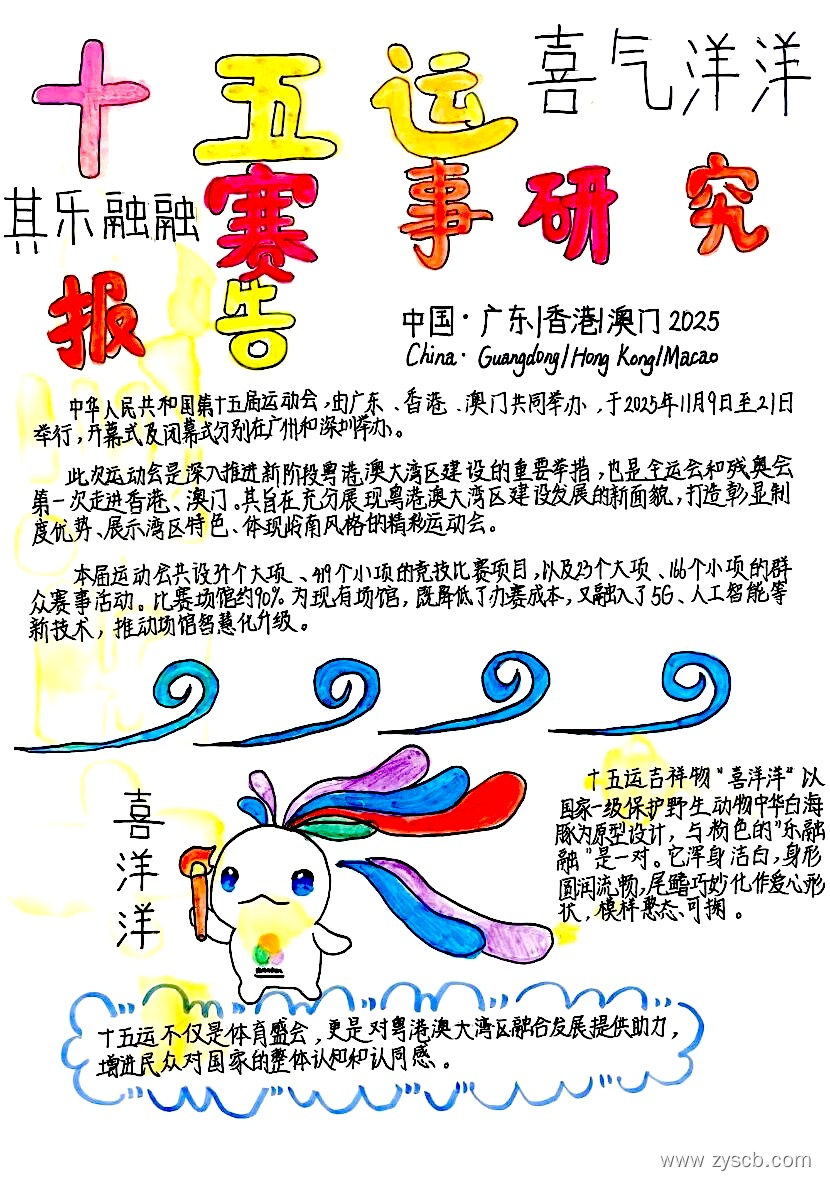 十五运
喜气洋洋
其乐融融
赛事研究
报告
中国·广东|香港|澳门 2025
China· Guangdong/Hong Kong/Macao
中华人民共和国第十五届运动会,由广东、香港、澳门共同举办,于2025年11月9日至21日
举行,开幕式及闭幕式分别在广州和深圳举办。
此次运动会是深入推进新阶段粤港澳大湾区建设的重要举措,也是全运会和残奥会
第一次走进香港、澳门。其旨在充分展现粤港澳大湾区建设发展的新面貌,打造彰显制
度优势、展示湾区特色、体现岭南风格的精彩运动会。
本届运动会共设34个大项、419个小项的竞技比赛项目,以及23个大项、166个小项的群
众赛事活动。比赛场馆约90%为现有场馆,既降低了办赛成本,又融入了5G、人工智能等
新技术,推动场馆智慧化升级。
喜洋洋
十五运吉祥物"喜洋洋"以
国家一级保护野生动物中华白海
豚为原型设计,与粉色的"乐融
融"是一对。它浑身洁白,身形
圆润流畅,尾鳍巧妙化作爱心形
状,模样憨态可掬。
十五运不仅是体育盛会,更是对粤港澳大湾区融合发展提供助力,
增进民众对国家的整体认知和认同感。
www.zyscb.com